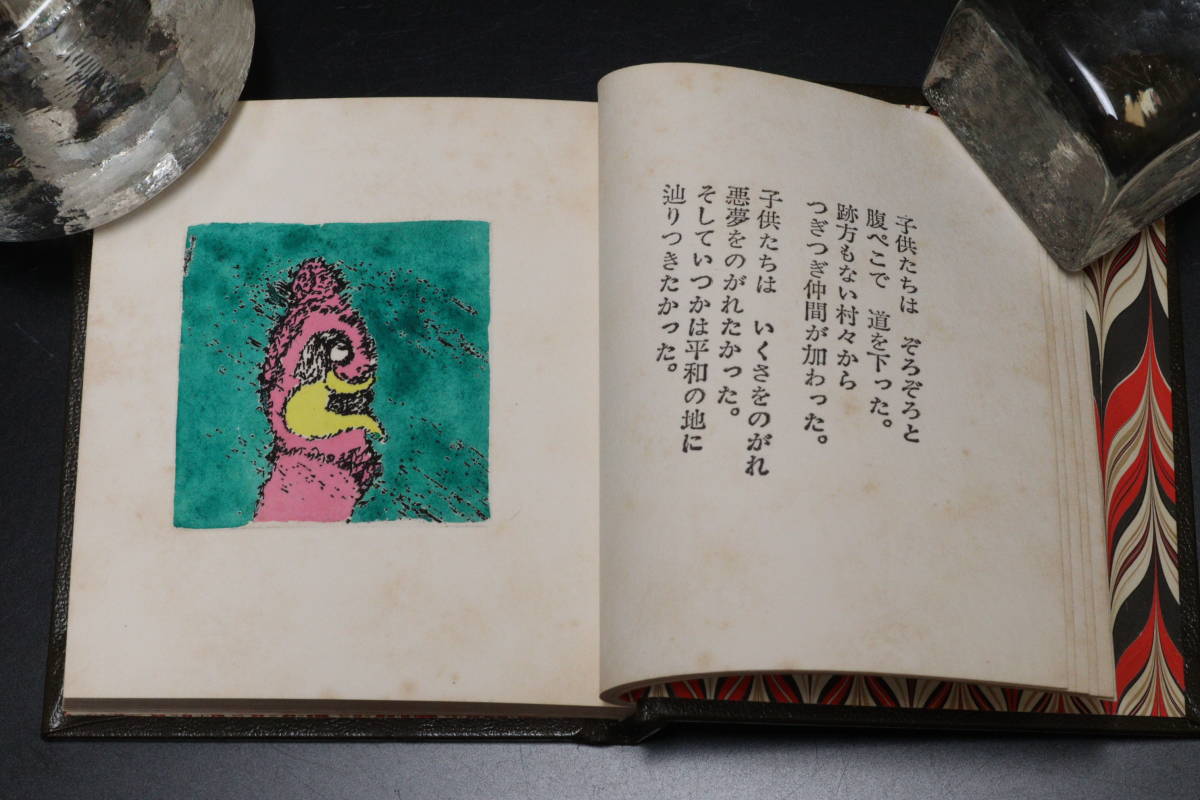 子供たちは　ぞろぞろと
腹ぺこで　道を下った。
跡方もない村々から
つぎつぎ仲間が加わった。
子供たちは　いくさをのがれ
悪夢をのがれたかった。
そしていつかは平和の地に
辿りつきたかった。